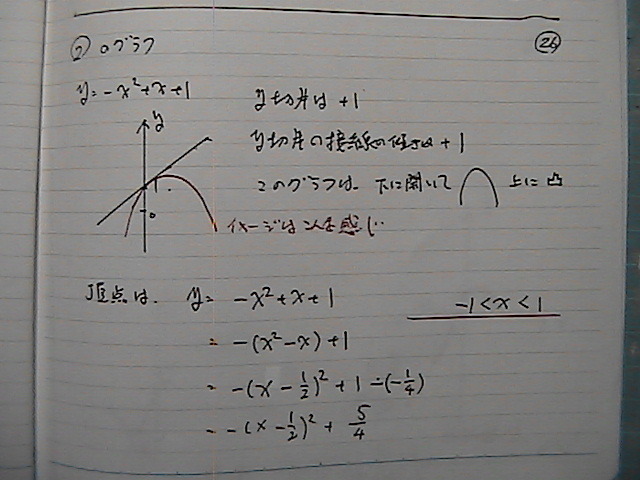 ② のグラフ
26
y=-x²+x+1
y切片は +1
y切片の接線の傾きは +1
このグラフは、下に開いて 上に凸
y
1
0
イメージはこんな感じ…
頂点は、 y= -x²+x+1
-1<x<1
= -(x²-x)+1
= -(x-1/2)²+1-(-1/4)
= -(x-1/2)²+5/4